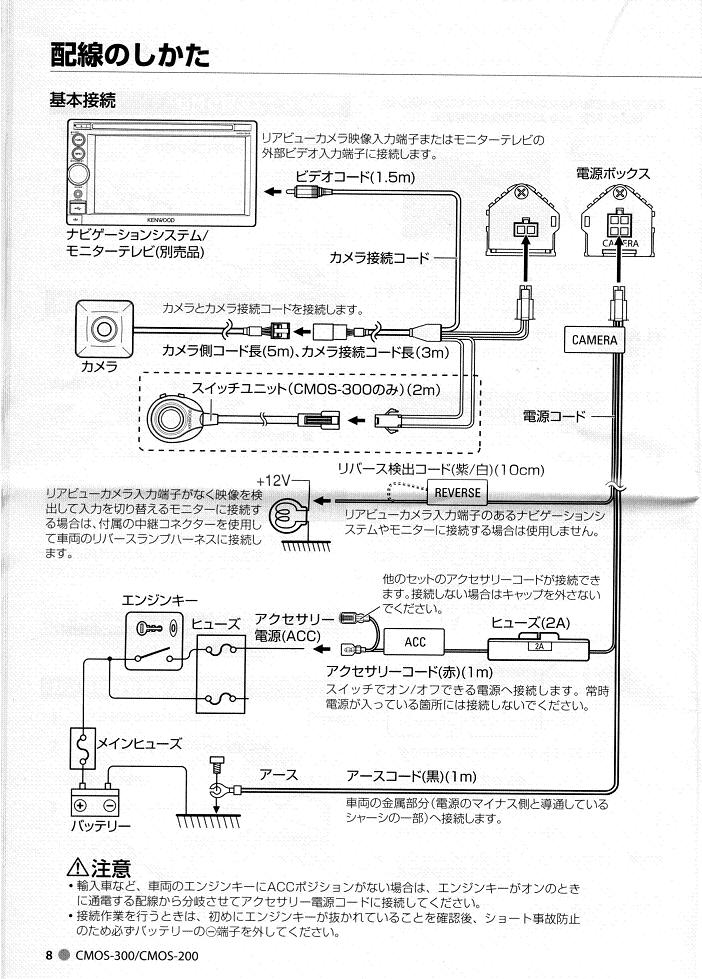 配線のしかた
基本接続
リアビューカメラ映像入力端子またはモニターテレビの
外部ビデオ入力端子に接続します。
ビデオコード(1.5m)
電源ボックス
KENWOOD
CAMERA
ナビゲーションシステム/
モニターテレビ(別売品)
カメラ接続コード
カメラとカメラ接続コードを接続します。
CAMERA
カメラ側コード長(5m)、カメラ接続コード長(3m)
カメラ
スイッチユニット(CMOS-300のみ)(2m)
電源コード
リバース検出コード(紫/白)(10cm)
+12V
REVERSE
リアビューカメラ入力端子がなく映像を検
出して入力を切り替えるモニターに接続す
る場合は、付属の中継コネクターを使用し
て車両のリバースランプハーネスに接続し
ます。
リアビューカメラ入力端子のあるナビゲーションシ
ステムやモニターに接続する場合は使用しません。
他のセットのアクセサリーコードが接続でき
ます。接続しない場合はキャップを外さない
でください。
エンジンキー
ヒューズ
アクセサリー
電源(ACC)
ACC
ヒューズ(2A)
2A
アクセサリーコード(赤)(1m)
スイッチでオン/オフできる電源へ接続します。常時
電源が入っている箇所には接続しないでください。
メインヒューズ
アース
アースコード(黒)(1m)
⊕ ⊖
バッテリー
車両の金属部分(電源のマイナス側と導通している
シャーシの一部)へ接続します。
⚠注意
• 輸入車など、車両のエンジンキーにACCポジションがない場合は、エンジンキーがオンのとき
に通電する配線から分岐させてアクセサリー電源コードに接続してください。
• 接続作業を行うときは、初めにエンジンキーが抜かれていることを確認後、ショート事故防止
のため必ずバッテリーの⊖端子を外してください。
8 ● CMOS-300/CMOS-200